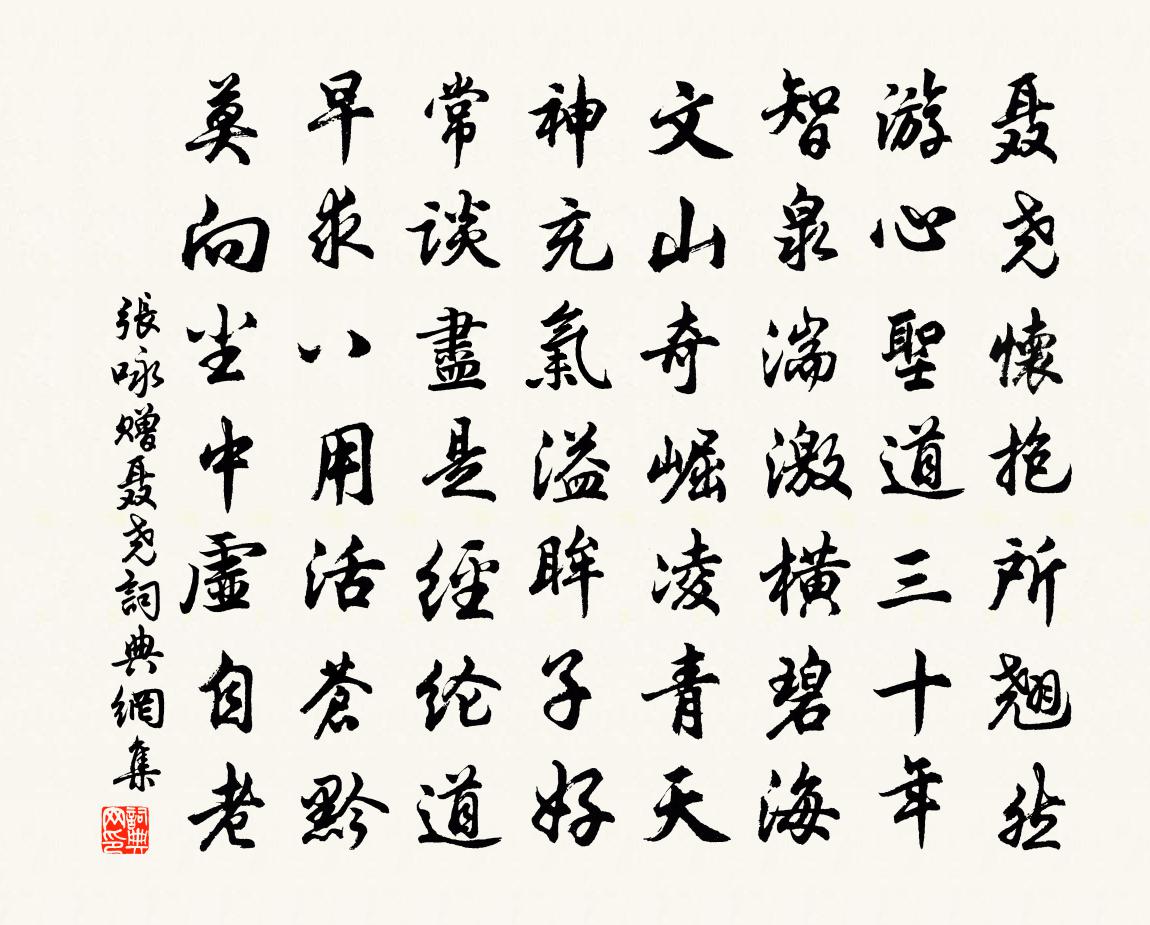 聂尧懷抱所翘然
游心聖道三十年
智泉湍激橫碧海
文山奇崛凌青天
神充氣溢眸子好
常談盡是經纶道
早求八用活蒼黔
莫向坐中虛自老
張咏赠聂尧詞典網集
詞典网印